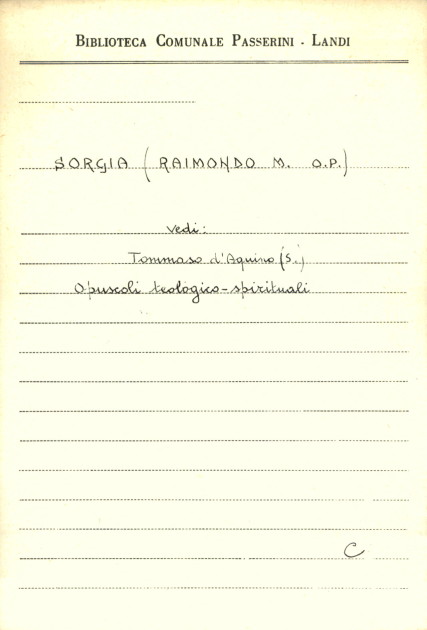 BIBLIOTECA COMUNALE PASSERINI - LANDI
SORGIA (RAIMONDO M. O.P.)
vedi:
Tommaso d'Aquino (S.)
Opuscoli teologico-spirituali
C